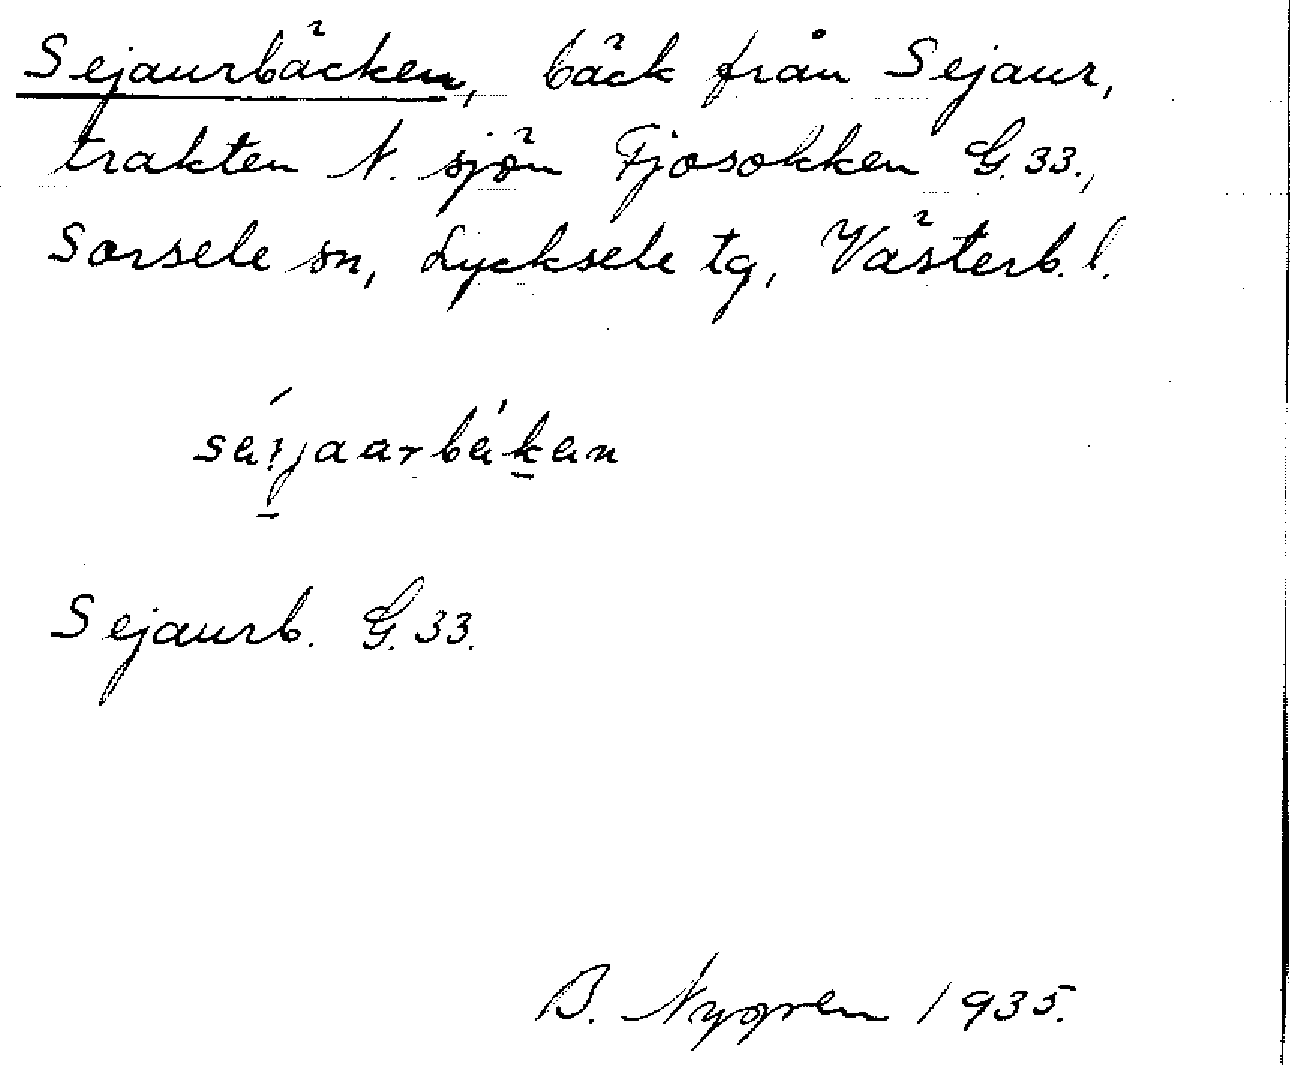 Sejaurbäcken, bäck från Sejaur,
trakten N. sjön Fjosokken G. 33.,
Sorsele sn, Lycksele tg, Västerb. l.
Sejaurb. G. 33.
B. Nygren 1935.